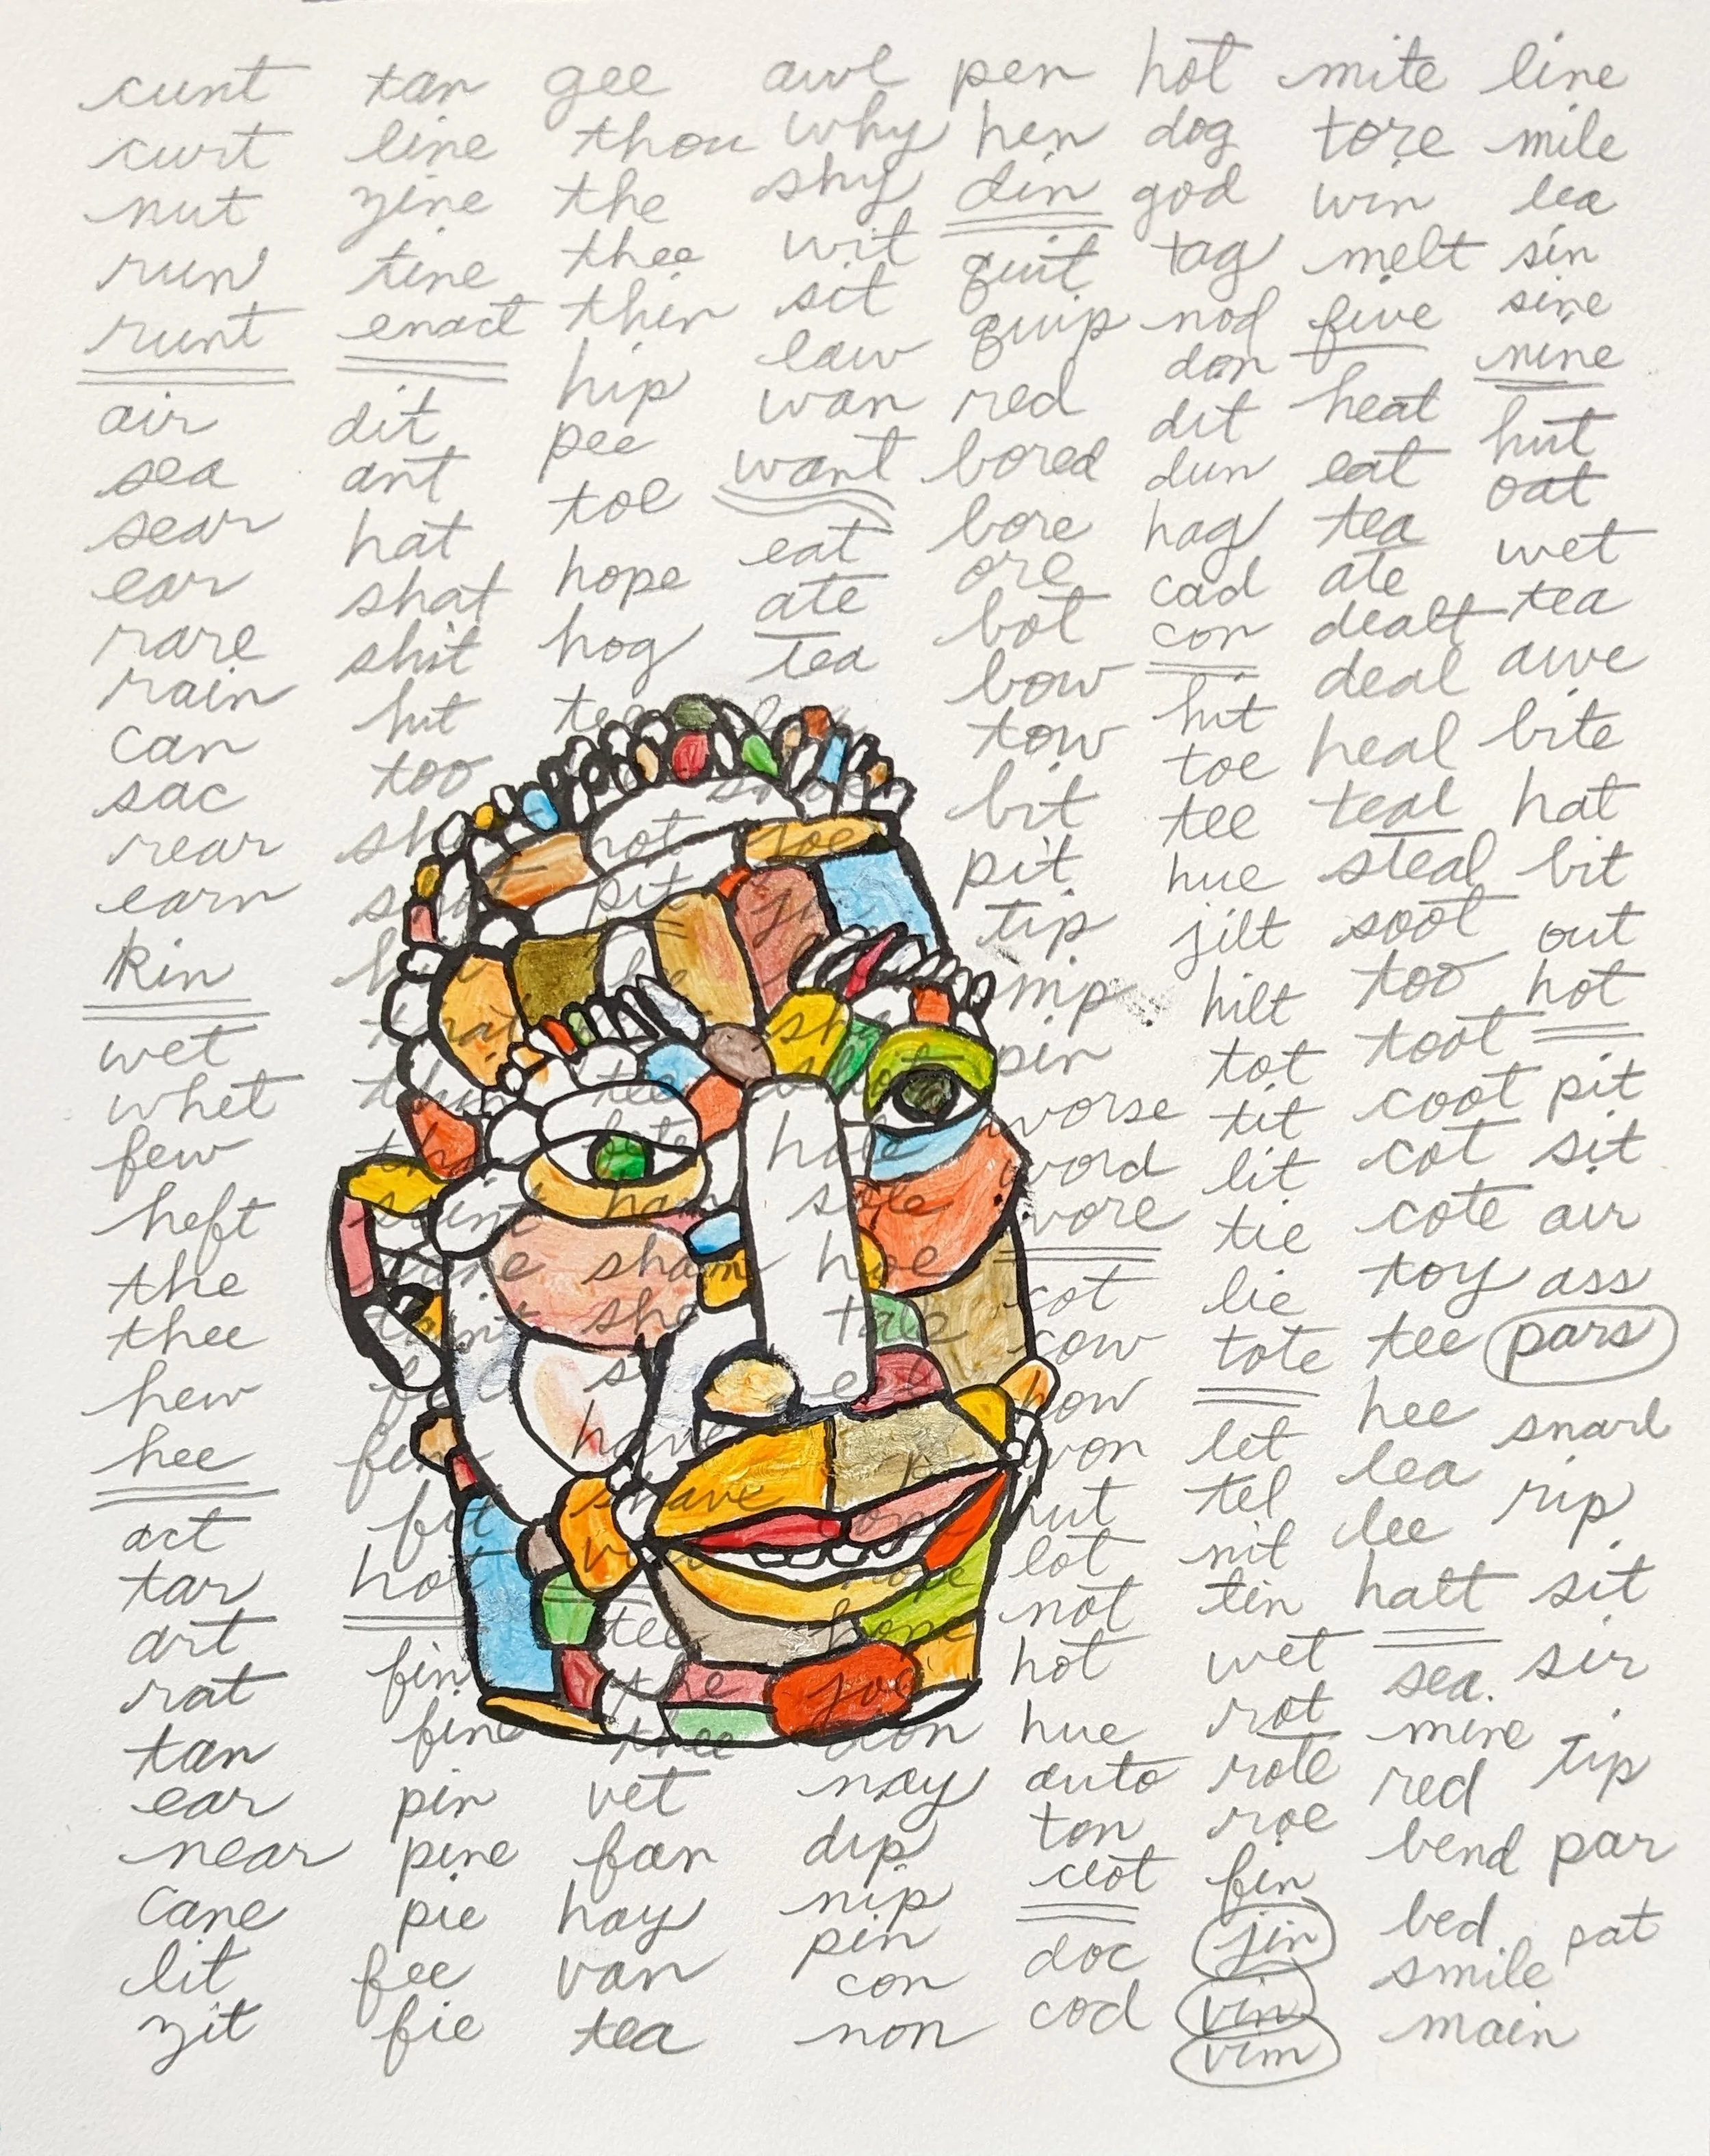 cunt
curt
nut
run
runt
air
sea
sear
ear
rare
rain
can
sac
rear
earn
kin
wet
whet
few
heft
the
thee
hew
hee
act
tar
art
rat
tan
ear
near
cane
lit
zit
tan
line
zine
tine
enact
dit
ant
hat
shat
shit
hit
too
saint
fit
hot
fin
fine
pin
pine
pie
fee
fie
gee
thou
the
thee
thin
hip
pee
toe
hope
hog
hot
pit
tee
ham
sham
she
have
shave
tee
the
thee
vet
fan
hay
van
tea
awl
why
shy
wit
sit
law
wan
want
eat
ate
tea
joe
shot
hole
sole
hoe
tale
hope
hone
joe
don
nay
dip
nip
pin
con
non
pen
hen
din
quit
quip
red
bored
bore
ore
bot
bow
tow
bit
pit
tip
nip
pin
worse
word
wore
cot
cow
how
won
nut
lot
not
hot
hue
auto
ton
clot
doc
cod
hot
dog
god
tag
nod
don
dit
dun
hag
cad
con
hit
toe
tee
hue
jilt
hilt
tot
tit
lit
tie
lie
tote
let
tel
nil
tin
wet
rot
rote
roe
fin
jin
vin
vim
mite
tore
win
melt
five
heat
eat
tea
ate
dealt
deal
heal
teal
steal
soot
too
toot
coot
cot
cote
toy
tee
hee
lea
lee
halt
sea.
mine
red
bend
bed
smile
main
line
mile
lea
sin
sine
nine
hut
oat
wet
tea
awe
bite
hat
bit
out
hot
pit
sit
air
ass
pars
snarl
rip
sit
sir
tip
par
pat